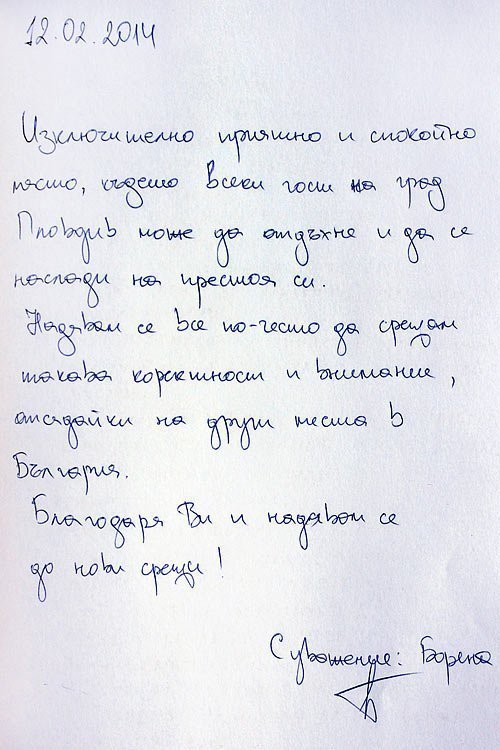 12.02.2014
Изключително приятно и спокойно
място, където всеки гост на град
Пловдив може да отдъхне и да се
наслади на престоя си.
Надявам се все по-често да срещам
такава коректност и внимание,
отсядайки на други места в
България.
Благодаря Ви и надявам се
до нови срещи!
С уважение: Борена